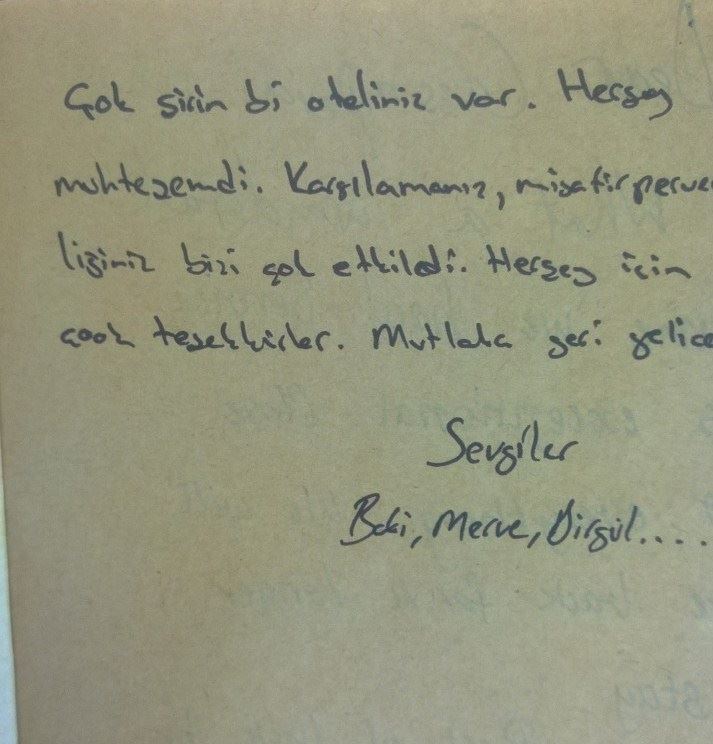 Çok şirin bi oteliniz var. Herşey
muhteşemdi. Karşılamanız, misafirperver
liğiniz bizi çok etkiledi. Herşey için
çook teşekkürler. Mutlaka geri gelice
Sevgiler
Merve, Birgül....